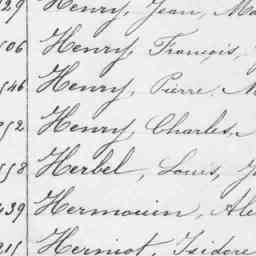 Henry, Jean, Ma
506 Henry, François,
546 Henry, Pierre, M
252 Henry, Charles,
558 Herbel, Louis, J
439 Hermouin, Ale
Herniot, Isidore